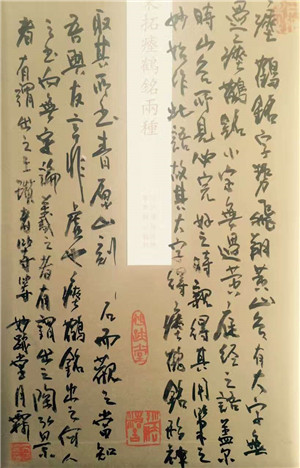 瘞鶴銘字勢飛翔黃山谷有大字無
過瘞鶴銘小字無過黃庭經之語蓋爾
時山谷所見必完好之時親得其用筆之
妙始作此語故其大字得瘞鶴銘形神
水拓瘞鶴銘兩種
取其所書者原山刻石而觀之當知
吾與友言非虛也瘞鶴銘出之何人
之書向無定論羲之者有謂出之陶弘景
者有謂出之王瓚者